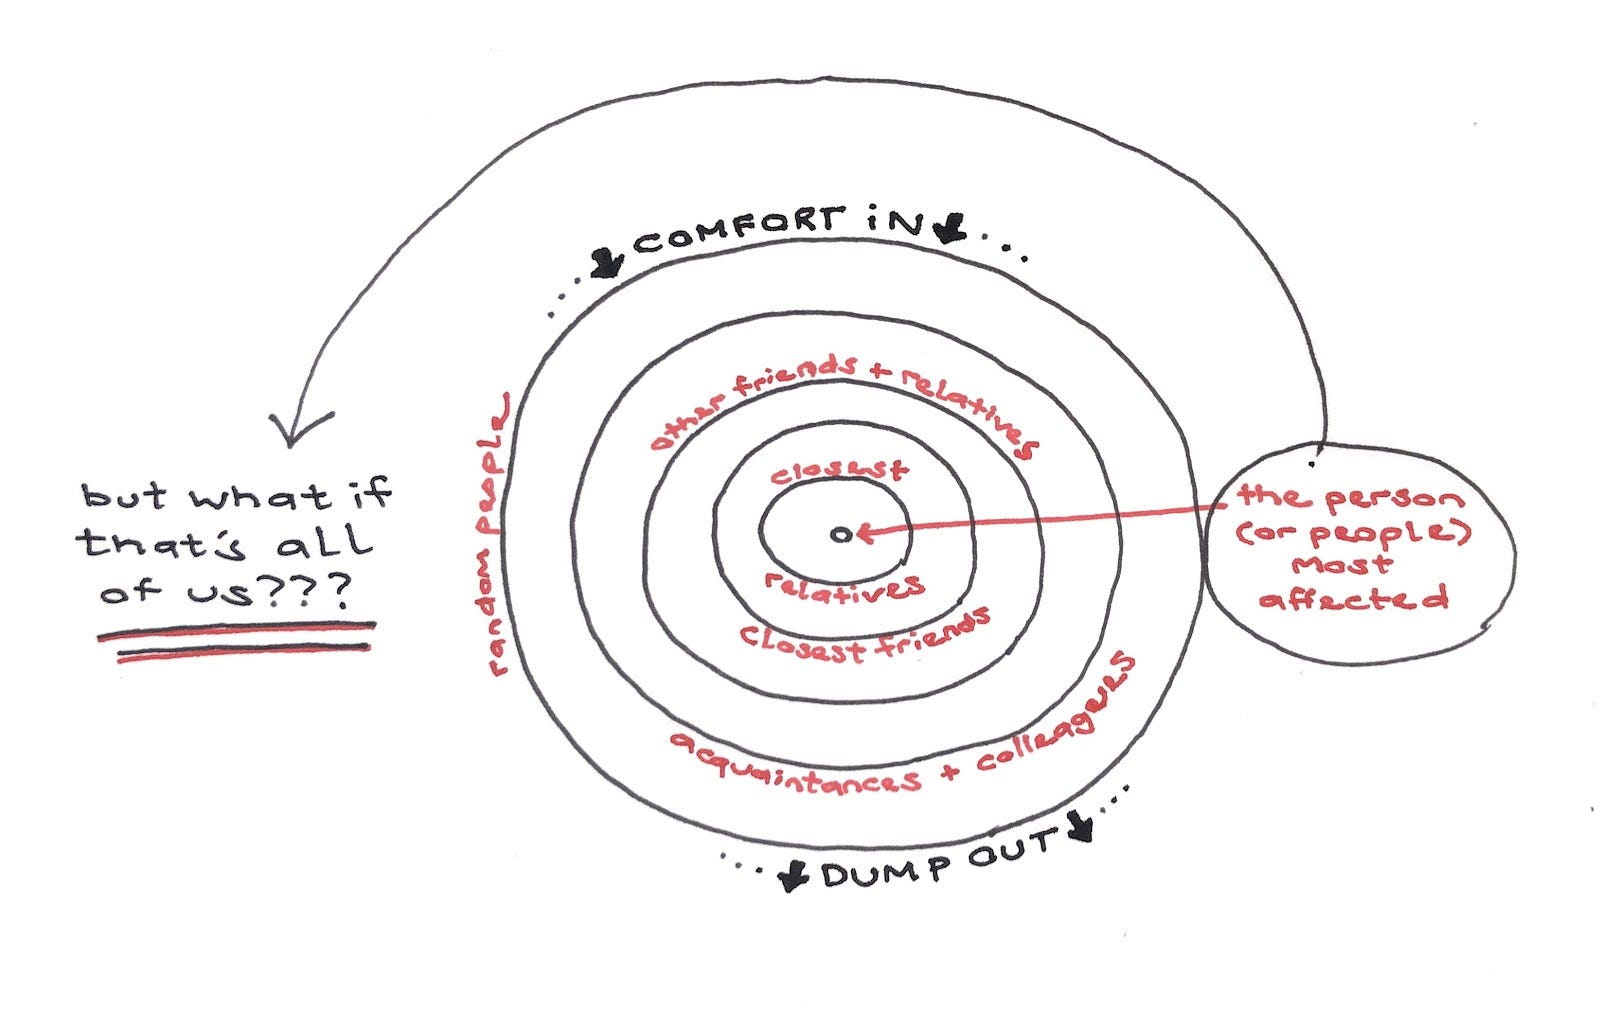 ↓ COMFORT iN ↓
other friends + relatives
closest
relatives
closest friends
acquaintances + colleagues
random people
↓ DUMP OUT ↓
the person
(or people)
most
affected
but what if
that's all
of us???